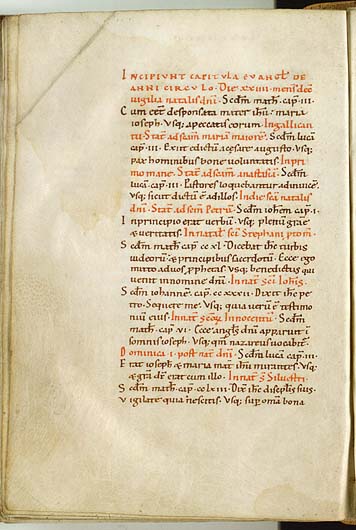 INCIPIUNT CAPITULA EVANGL DE
ANNI CIRCULO. Die XXIIII. mens dec
vigilia natalis dni. Scdm math. cap. III.
Cum eet desponsata mater ihu. maria
ioseph. Usq; a peccatis eorum. In gallican
tu. Stat ad scam mariam maiore. Scdm lucā
cap. III. Exiit edictū a cesare augusto. Usq;
pax hominibus bone voluntatis. In pri
mo mane. Stat ad scam anastasiā. Scdm
lucā. cap. III. Pastores loquebantur ad inuicē.
usq; sicut dictū ē ad illos. In die scā natalis
dni. Stat ad scm Petrū. Scdm iohem cap. I.
In principio erat verbū. Usq; plenū gratię
& veritatis. In natal sci Stephani protom.
Scdm math. cap. cc xl. Dicebat ihc turbis
iudeorū & principibus sacerdotū. Ecce ego
mitto ad uos prophetas. Usq; benedictus qui
venit in nomine dni. In nat sci Iohis.
Scdm iohanne. cap. cc xxxii. Dixit ihc pe
tro. Sequere me. Usq; quia verū ē testimo
niū eius. In nat scōꝝ Innocentū. Scdm
math. cap. VI. Ecce angls dni apparuit i
somnis ioseph. Usq; qm nazareus uocabit.
Dominica. I. post nat dni. Scdm lucā cap. III.
Erat ioseph & maria mat ihu mirantes. Usq;
& gra di erat cum illo. In nat s Siluestri.
Scdm math. cap. cc lxiii. Dix ihc disciplis suis
vigilate quia nescitis. Usq; sup omia bona